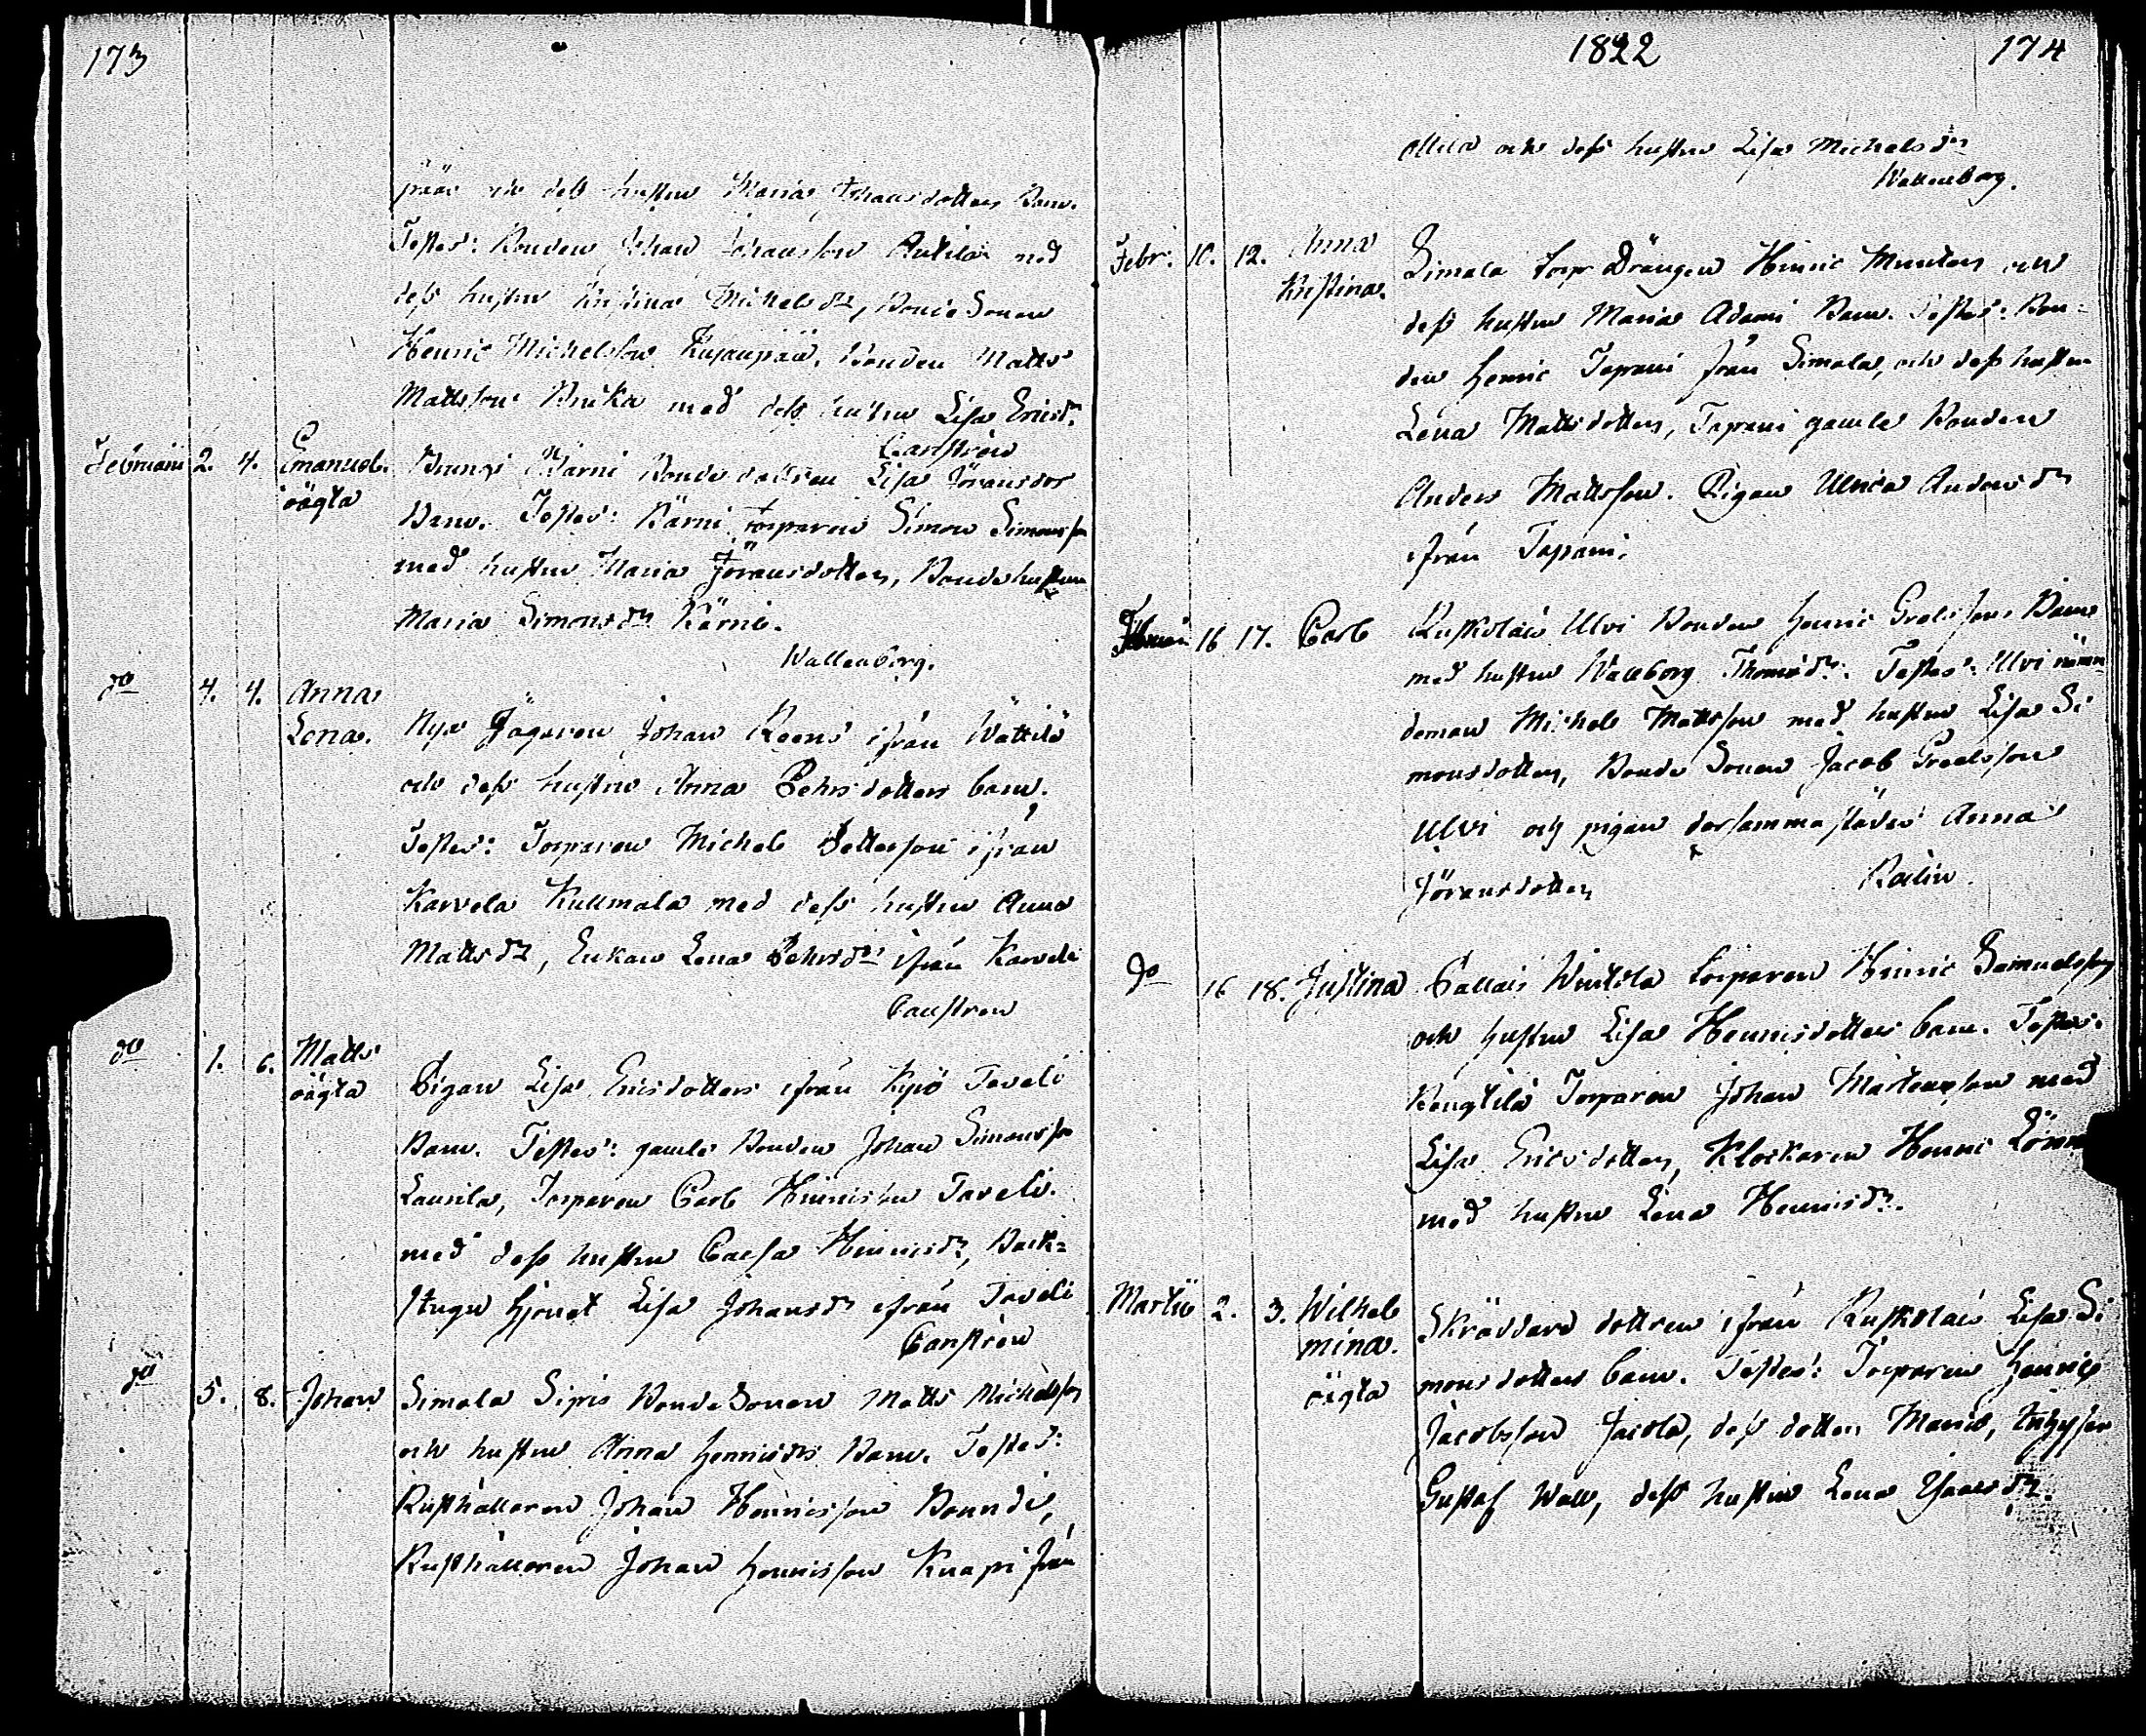 173
och dess hustru Maria Johansdotters Barn.
Testes: Bonden Johan Johansson Antila med
dess hustru Kristina Michelsdr, Bonde Sonen
Henric Michelsson Kujanpää, Bonden Matts
Mattsson med dess hustru Lisa Ericsdr.
Canstrén
Februarii 2. 4. Emanuel. Kärni Bonde dottren Lisa Jöransdrs
oägta
Barn. Testes: Kärni torparen Simon Simonsson
med hustru Maria Jöransdotter, Bonde hustrun
Maria Simonsdr Kärni.
Wallenborg.
do 4. 4. Anna
Lena. Nya Jägaren Johan Keens ifrån Wättilä
och dess hustru Anna Pehrsdotters barn.
Testes: Torparen Michel Pettersson ifrån
Karvela Kullmala med dess hustru Anna
Mattsdr, Enkan Lena Pehrsdr ifrån Karvela
Canstren
do 1. 6. Matts
oägta Pigan Lisa Ericsdotters ifrån Kyrö Taveli
Barn. Testes: gamle Bonden Johan Simonsson
Laurila, Torparen Carl Henricsson Taveli
med dess hustru Caisa Henricsdr, Back-
stugu hjonet Lisa Johansdr ifrån Taveli
Canstrén
do 5. 8. Johan Simala Sipis Bonde Sonen Matts Michelsson
och hustru Anna Henricsdrs Barn. Testes:
Rusthållaren Johan Henricsson Bonndi,
Rusthållaren Johan Henricsson Knapi från
1822 174
och dess hustru Lisa Michelsdr
Wallenborg.
Febr. 10. 12. Anna
Kristina. Simala torp Drängen Henric Munter och
dess hustru Maria Adami Barn. Testes: Bon-
den Henric Tapani från Simala, och dess hustru
Lena Mattsdotter, Tapani gamle Bonden
Anders Mattsson. Pigan Ulrica Andersdr
från Tapani.
16 17. Carl Ruskolais Ulvi Bonden Henric Grelssons Barn
med hustru Walborg Thomsdr. Testes: Ulvi näm-
deman Michel Mattsson med hustru Lisa Si
monsdotter, Bonde Sonen Jacob Greelsson
Ulvi och pigan dersammastädes Anna
Jöransdotter
do 16 18. Justina Pallais Winttola torparen Henric Samuelsson
och hustru Lisa Henricsdotters barn. Testes.
Bengtilä Torparen Johan Mårtensson med
Lisa Ericsdotter, Klockaren Henric
med hustru Lena Henricsdr.
Martii 2. 3. Wilhel
mina. Skräddare dottren ifrån Ruskolais Lisa Si
oägta monsdotters barn. Testes: Torparen Henric
Jacobsson Jacola, dess dotter Maria,
Gustaf Wall, dess hustru Lena Isacsdr.